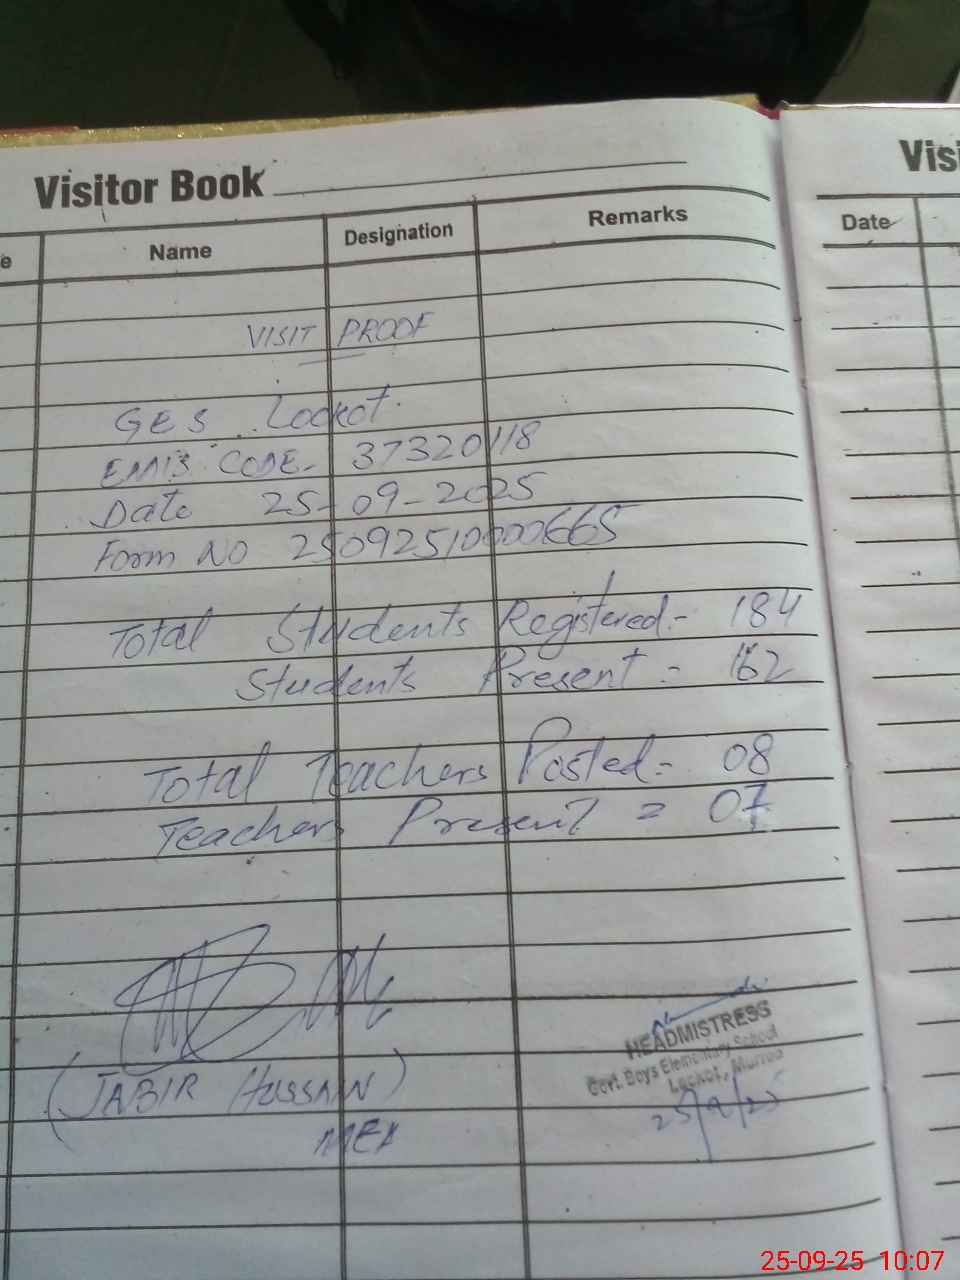 Visitor Book
Name Designation Remarks
Visi
Date
VISIT PROOF
GES Lockot.
EMIS CODE- 37320118
Date 25-09-2025
Form NO 25092510000665
Total Students Registered:- 184
Students Present :- 162
Total Teachers Posted:- 08
Teachers Present = 07
(JABIR HUSSAIN)
MEA
HEADMISTRESS
Govt. Boys Elementary School
Lockot, Murree
25/9/25
25-09-25 10:07